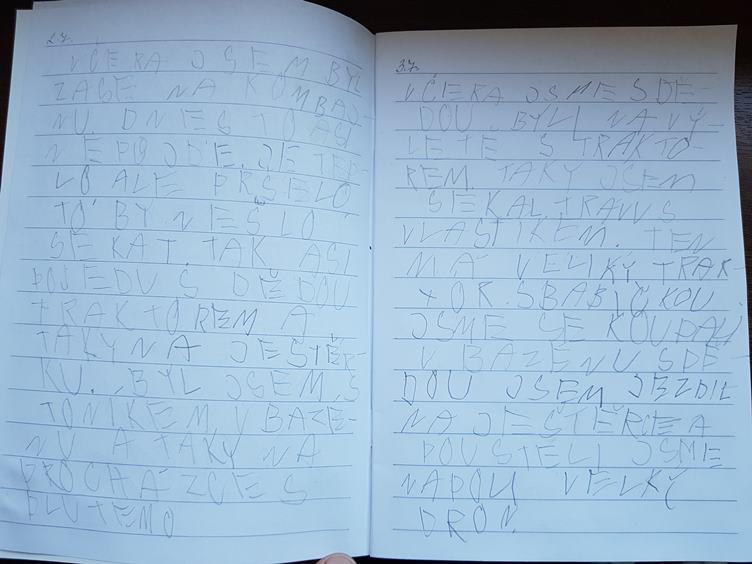 2.7.
VČERA JSEM BYL
ZASE NA KOMBAJ-
NU. DNES TO ASI
NEPOJDE. JE TEP-
LO ALE PRŠELO
TO BY NEŠLO
SEKAT. TAK ASI
POJEDU S DĚDOU
TRAKTOREM A
TAKY NA JEŠTĚR-
KU. BYL JSEM S
TONIKEM V BAZÉ-
NU A TAKY NA
PROCHÁZCE S
PLUTEMO
3.7.
VČERA JSME S DĚ-
DOU BYLI NA VÝ-
LETĚ S TRAKTO-
REM. TAKY JSEM
SEKAL TRAVU S
VLASTIKEM. TEN
MÁ VELIKÝ TRAK-
TOR. S BABIČKOU
JSME SE KOUPALI
V BAZÉNU S DĚ-
DOU JSEM JEZDIL
NA JEŠTĚRCE A
POUŠTĚLI JSME
NAPOLI VELKÝ
DRON.